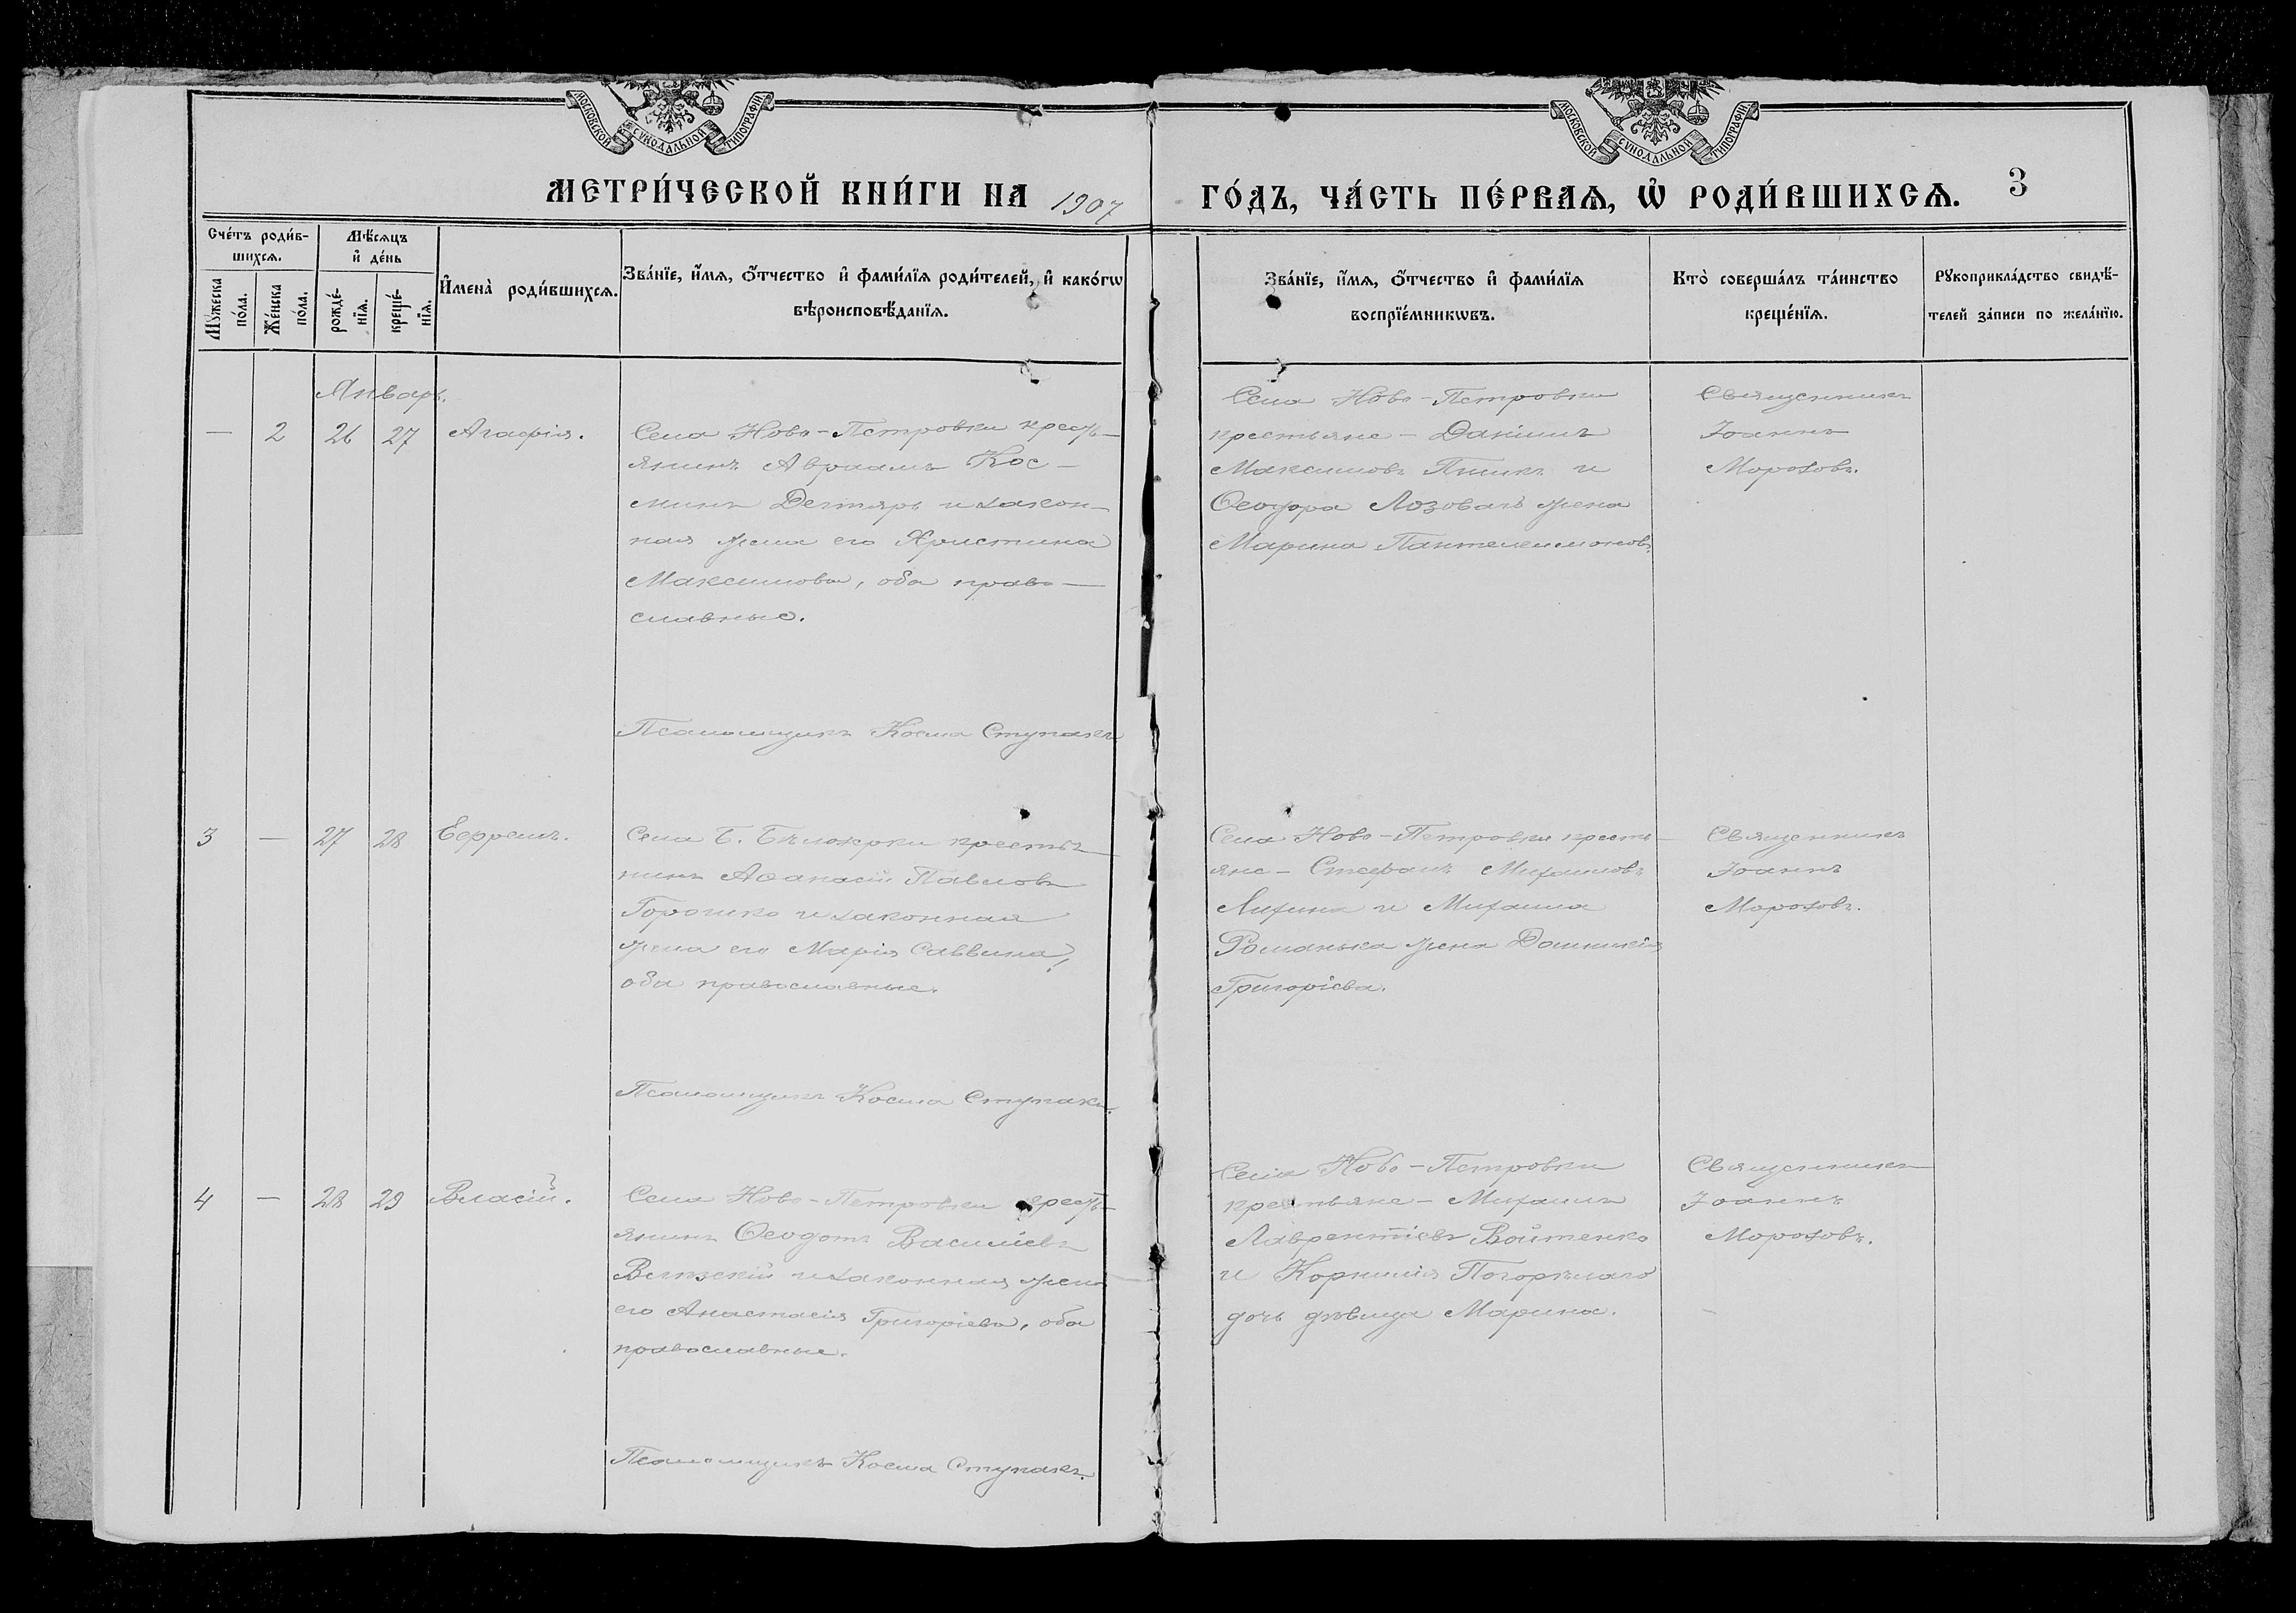 МОСКОВСКОЙ СУНОДАЛЬНОЙ ТИПОГРАФІИ
МОСКОВСКОЙ СУНОДАЛЬНОЙ ТИПОГРАФІИ
МЕТРИ́ЧЕСКОЙ КНИ́ГИ НА 1907 ГО́ДЪ, ЧА́СТЬ ПЕ́РВАѦ, Ѡ҆ РОДИ́ВШИХСѦ. 3
Сче́тъ роди́в-
шихсѧ.
Мѣ́сѧцъ
и҆ де́нь
Мꙋ́жеска
по́ла.
Же́нска
по́ла.
рожде́-
нїѧ.
креще́-
нїѧ.
И҆мена̀ роди́вшихсѧ.
Зва́нїе, и҆́мѧ, ѻ҆́тчество и҆ фами́лїѧ роди́телей, и҆ како́гѡ
вѣроисповѣ́данїѧ.
Зва́нїе, и҆́мѧ, ѻ҆́тчество и҆ фами́лїѧ
воспрїе́мникѡвъ.
Кто̀ соверша́лъ та́инство
креще́нїѧ.
Рꙋкоприкла́дство свидѣ́-
телей за́писи по жела́нїю.
Январь.
— 2 26 27 Агафія.
Села Ново-Петровки кресть-
янинъ Авраамъ Кос-
минъ Дегтярь и закон-
ная жена его Христина
Максимова, оба право-
славные.
Псаломщикъ Косма Ступакъ
Села Ново-Петровки
крестьяне - Даніилъ
Максимовъ и
Ѳеодора Лозоваго жена
Марина Пантелеимонов.
Священникъ
Іоаннъ
Морозовъ.
3 — 27 28 Ефремъ.
Села Б. Бѣлозерки крестья-
нинъ Аѳанасій Павловъ
Горошко и законная
жена его Марія Саввина,
оба православные.
Псаломщикъ Косма Ступакъ.
Села Ново-Петровки кресть-
яне - Стефанъ Михаиловъ
и Михаила
Романька жена Домникія
Григоріева.
Священникъ
Іоаннъ
Морозовъ.
4 — 28 29 Власій.
Села Ново-Петровки кресть-
янинъ Ѳеодотъ Василіевъ
и законная жена
его Анастасія Григоріева, оба
православные.
Псаломщикъ Косма Ступакъ.
Села Ново-Петровки
крестьяне - Михаилъ
Лаврентіевъ Войтенко
и Корнилія Погорѣлаго
дочь дѣвица Марина.
Священникъ
Іоаннъ
Морозовъ.